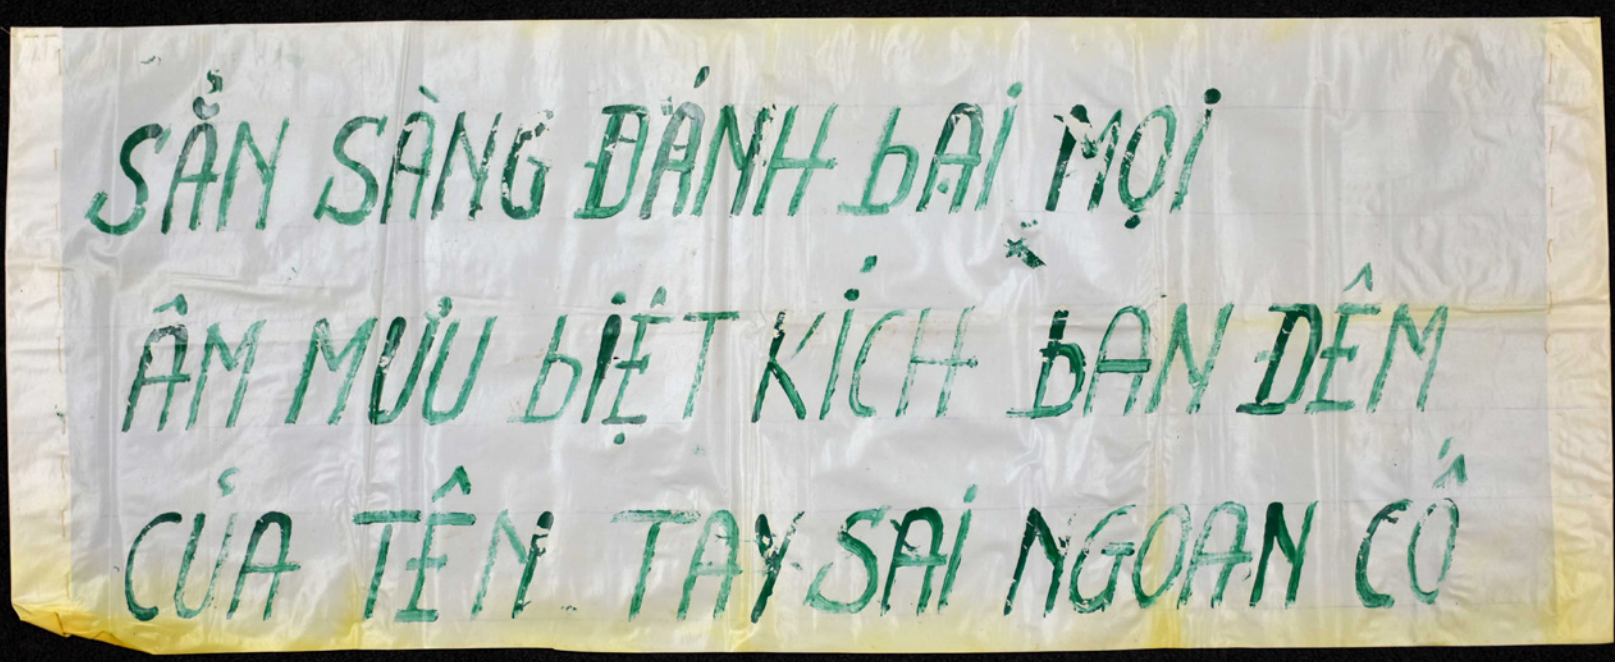 SẲN SÀNG ĐÁNH BẠI MỌI
ÂM MƯU BIỆT KÍCH BAN ĐÊM
CỦA TÊN TAY SAI NGOAN CỐ